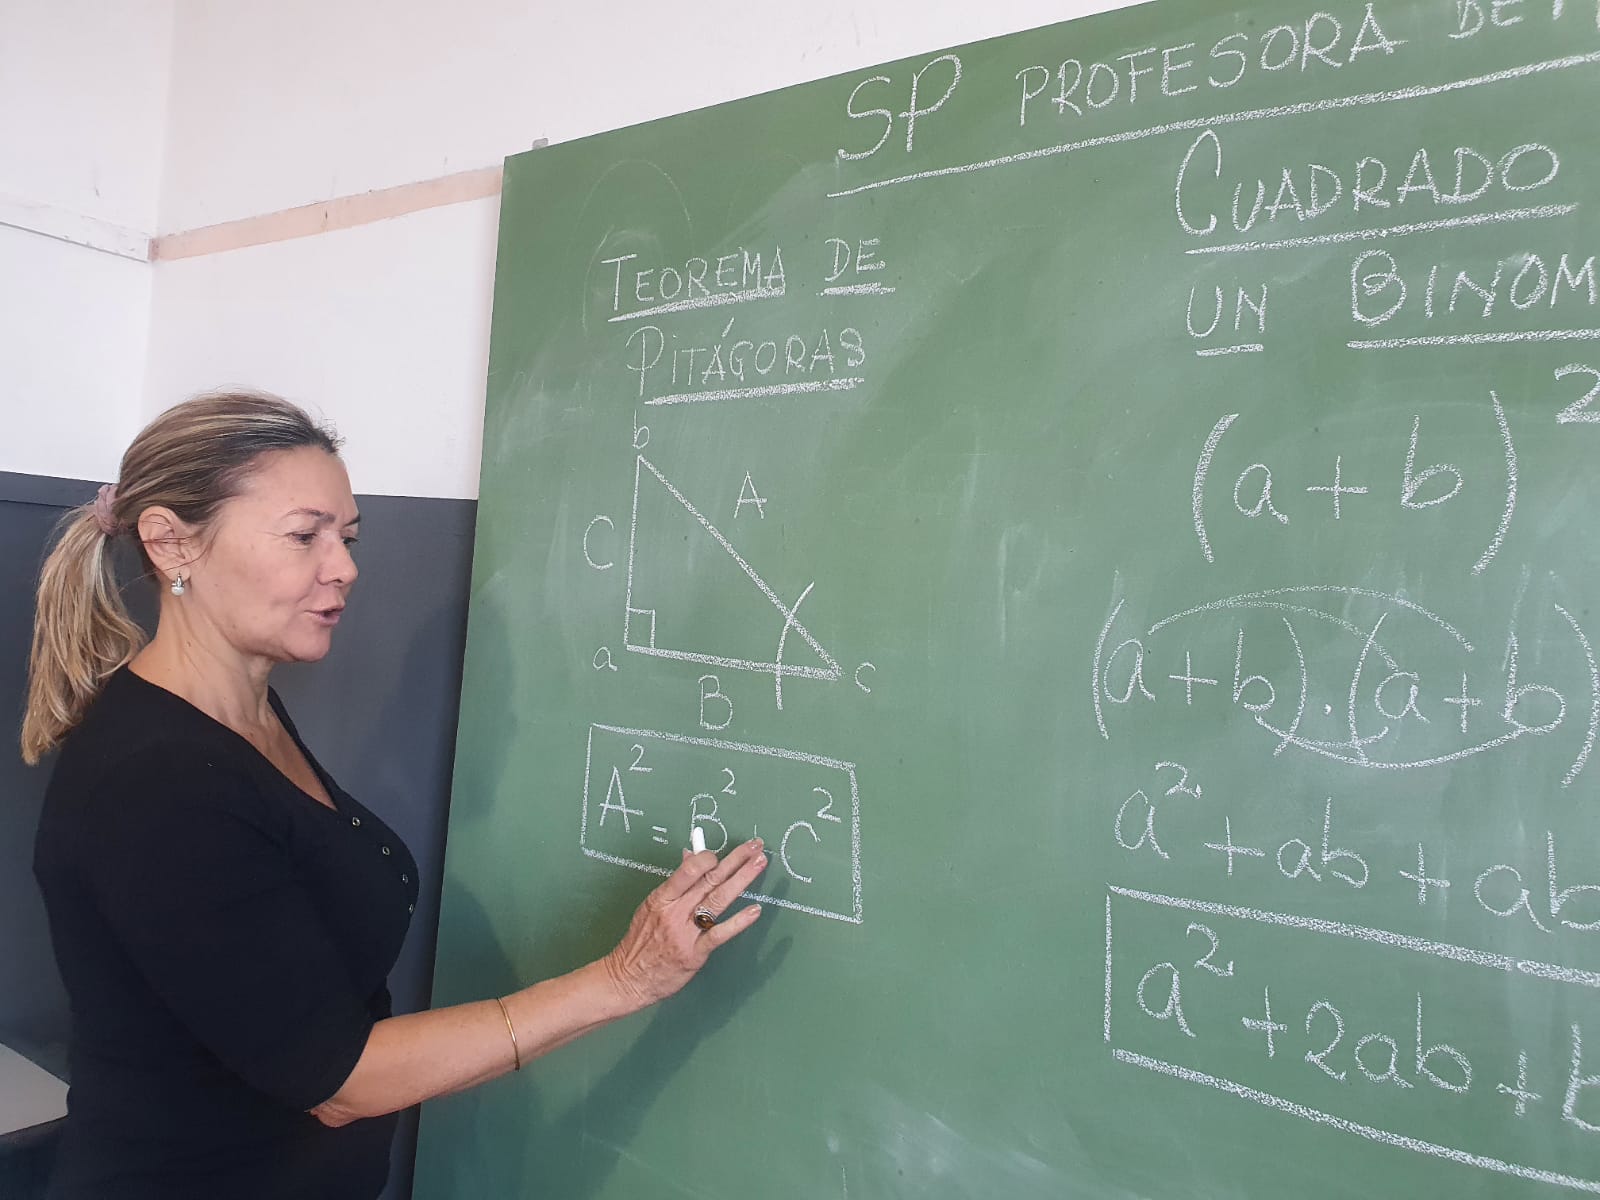 SP PROFESORA DE
TEOREMA DE
PITÁGORAS
b
A
C
a
c
B
A² = B² + C²
CUADRADO
UN BINOM
(a+b)²
(a+b).(a+b)
a² + ab + ab
a² + 2ab + b